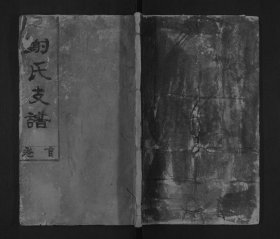 氏支譜
卷首